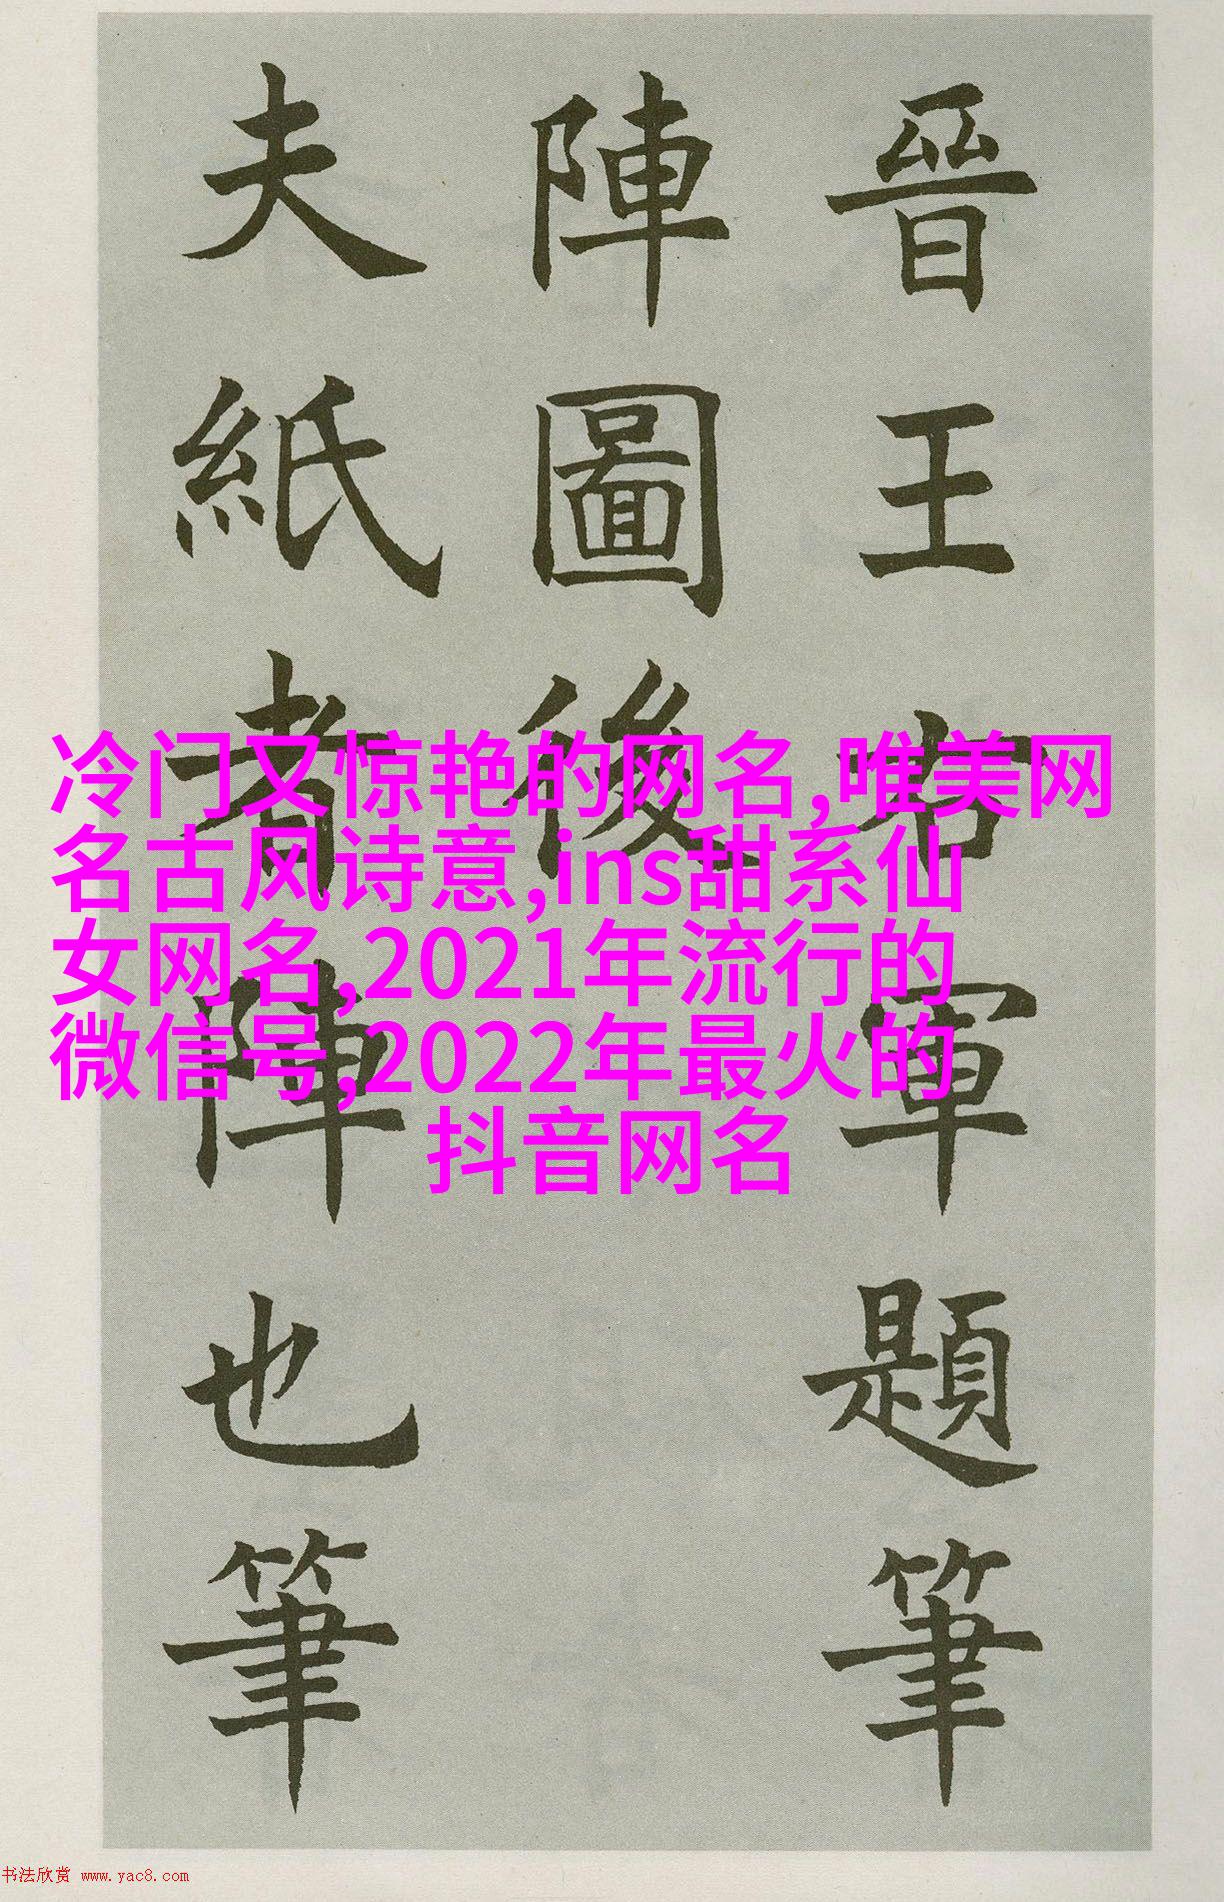 晉王右軍題筆
陣圖後
夫紙者陣也筆
冷门又惊艳的网名,唯美网
名古风诗意,ins甜系仙
女网名,2021年流行的
微信号,2022年最火的
抖音网名
书法欣赏 www.yac8.com